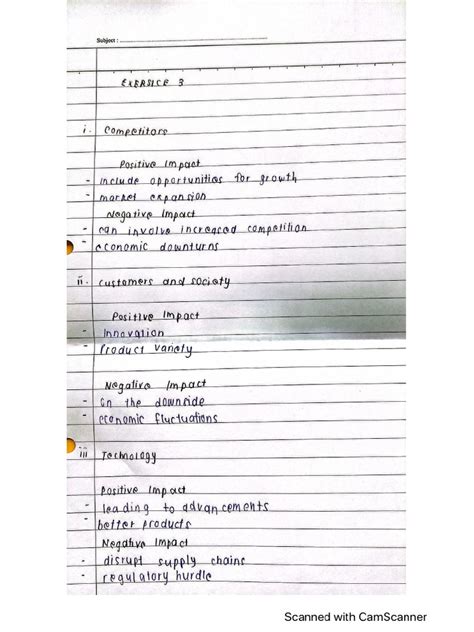 Subject :
EXERSICE 3
i. Competitors
Positive Impact
- Include opportunities for growth
- market expansion
Negative Impact
- can involve increased competition
- economic downturns
ii. customers and society
Positive Impact
- Innovation
- Product variety
Negative Impact
- On the downside
- economic fluctuations
iii Technology
Positive Impact
- leading to advancements
- better products
Negative Impact
- disrupt supply chains
- regulatory hurdle
Scanned with CamScanner